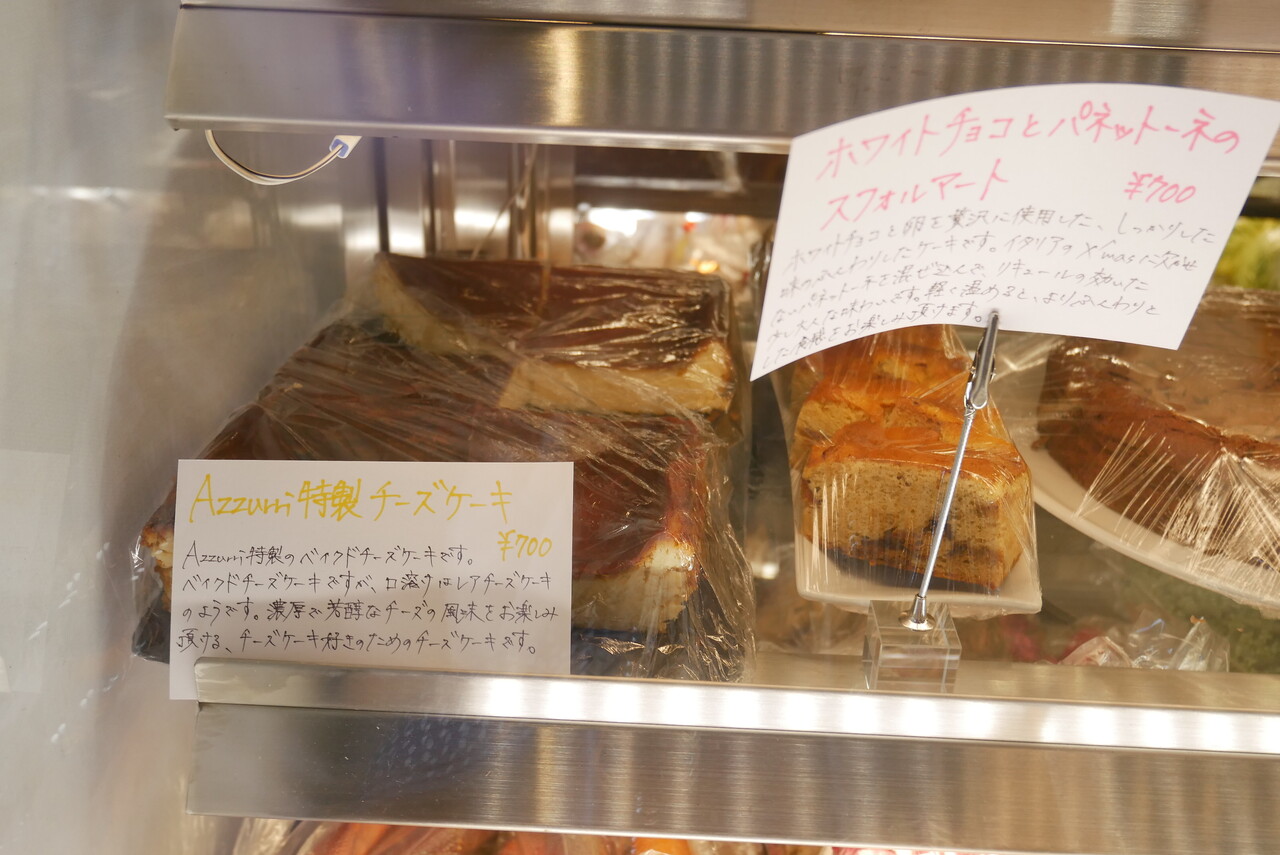 Azzurri特製チーズケーキ
¥700
Azzurri特製のベイクドチーズケーキです。
ベイクドチーズケーキですが、口溶けはレアチーズケーキ
のようです。濃厚で芳醇なチーズの風味をお楽しみ
頂ける、チーズケーキ好きのためのチーズケーキです。
ホワイトチョコとパネットーネの
スフォルマート
¥700
ホワイトチョコと卵を贅沢に使用した、しっかりした
味のふんわりしたケーキです。イタリアのX'masに欠かせ
ないパネットーネを混ぜ込んで、リキュールの効いた
少し大人な味わいです。軽く温めると、よりふんわりと
した食感をお楽しみ頂けます。